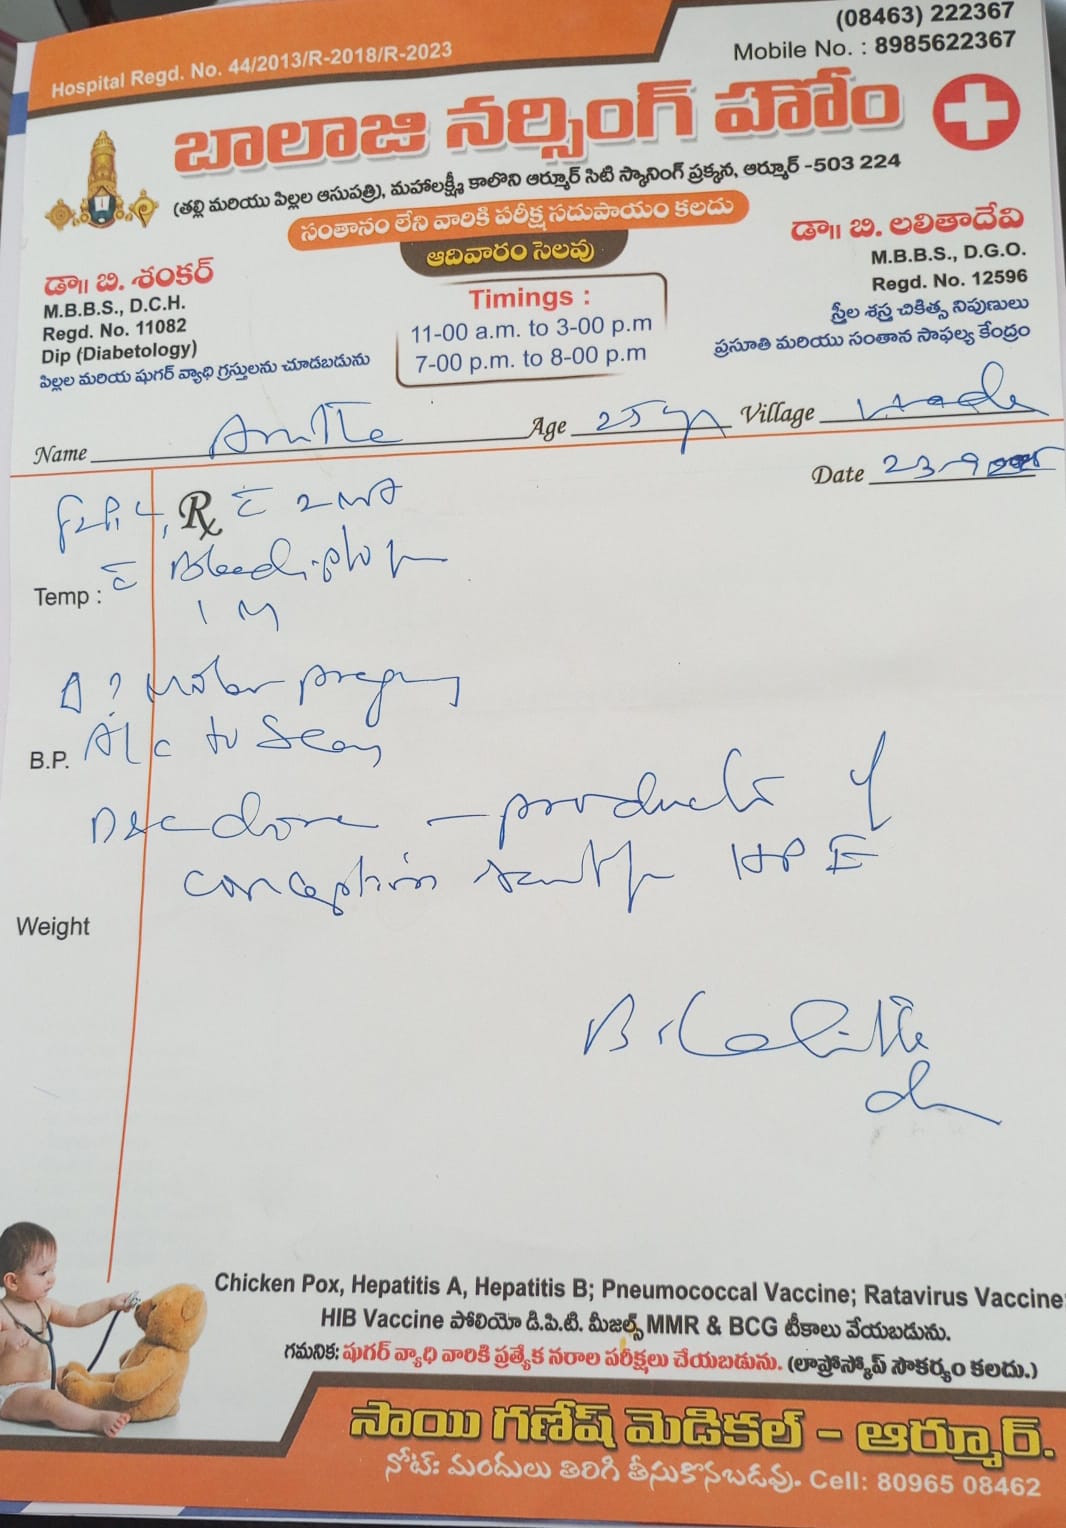 (08463) 222367
Hospital Regd. No. 44/2013/R-2018/R-2023
Mobile No. : 8985622367
బాలాజి నర్సింగ్ హోం
(తల్లి మరియు పిల్లల ఆసుపత్రి), మహాలక్ష్మీ కాలొని ఆర్మూర్ సిటి స్కానింగ్ ప్రక్కన, ఆర్మూర్ -503 224
సంతానం లేని వారికి పరీక్ష సదుపాయం కలదు
ఆదివారం సెలవు
డా|| బి. శంకర్
M.B.B.S., D.C.H.
Regd. No. 11082
Dip (Diabetology)
పిల్లల మరియు షుగర్ వ్యాధి గ్రస్తులను చూడబడును
Timings :
11-00 a.m. to 3-00 p.m
7-00 p.m. to 8-00 p.m
డా|| బి. లలితాదేవి
M.B.B.S., D.G.O.
Regd. No. 12596
స్త్రీల శస్త్ర చికిత్స నిపుణులు
ప్రసూతి మరియు సంతాన సాఫల్య కేంద్రం
Name Age 25 Village
Date 23-9
Rx
Temp :
Bleeding p/v
1 M
? Molar pregnancy
B.P.
D&C done - products of
conception sent for HPE
Weight
Chicken Pox, Hepatitis A, Hepatitis B; Pneumococcal Vaccine; Ratavirus Vaccine;
HIB Vaccine పోలియో డి.పి.టి. మీజల్స్ MMR & BCG టీకాలు వేయబడును.
గమనిక: షుగర్ వ్యాధి వారికి ప్రత్యేక నరాల పరీక్షలు చేయబడును. (లాప్రోస్కోప్ సౌకర్యం కలదు.)
సాయి గణేష్ మెడికల్ - ఆర్మూర్.
నోట్: మందులు తిరిగి తీసుకొనబడవు. Cell: 80965 08462